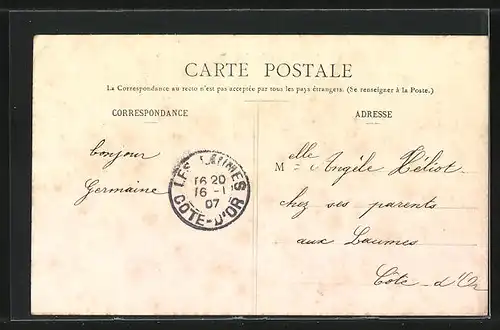 CARTE POSTALE
La Correspondance au recto n'est pas acceptée par tous les pays étrangers. (Se renseigner à la Poste.)
CORRESPONDANCE
ADRESSE
bonjour
Germaine
LES LAUMES
16 20
16 -1
07
COTE-D'OR
Melle Angèle Héliot
chez ses parents
aux Laumes
Côte-d'Or